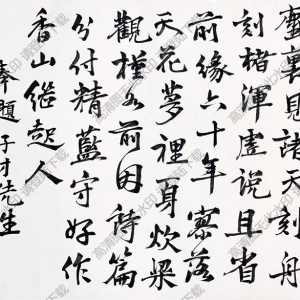 塵裏見諸天刻舟
刻楮渾虛說且省
前緣六十年寥落
天花夢裡身炊粱
觀槿前因詩篇
分付精藍守好作
香山繼起人
奉題子才先生